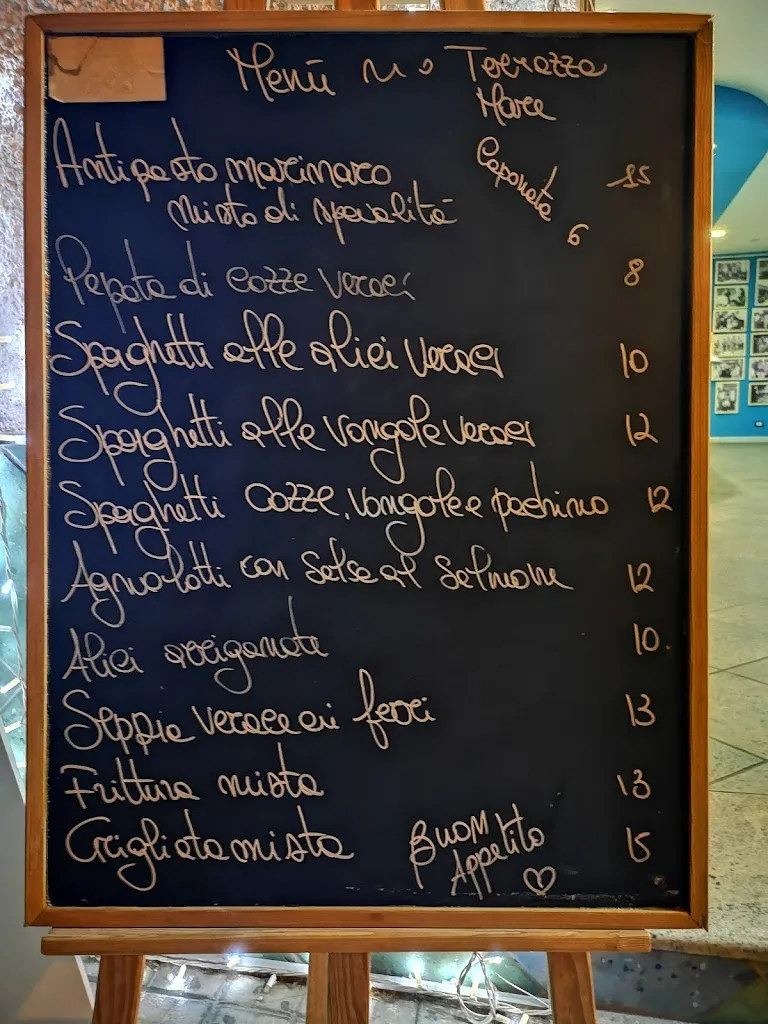 Menù Terrazza
Mare
Antipasto marinaro 15
misto di specialità
Caponata 6
Pepata di cozze veraci 8
Spaghetti alle alici veraci 10
Spaghetti alle vongole veraci 12
Spaghetti cozze, vongole e pachino 12
Agnolotti con salsa al salmone 12
Alici arriganate 10
Seppia verace ai ferri 13
Frittura mista 13
Grigliata mista 15
Buon
Appetito